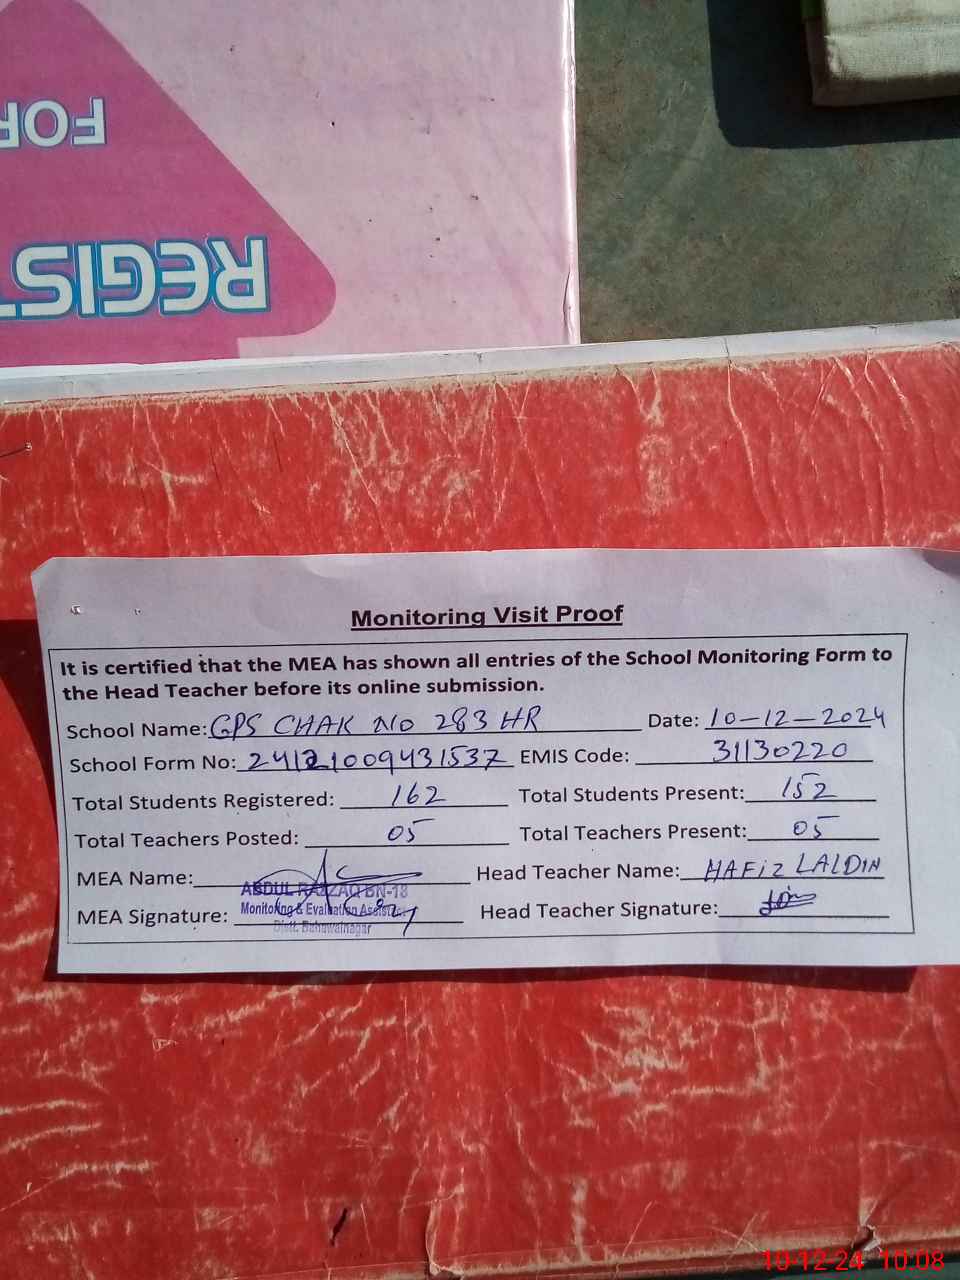 FOR
REGIST
Monitoring Visit Proof
It is certified that the MEA has shown all entries of the School Monitoring Form to
the Head Teacher before its online submission.
School Name: GPS CHAK NO 283 HR Date: 10-12-2024
School Form No: 24121009431537 EMIS Code: 31130220
Total Students Registered: 162 Total Students Present: 152
Total Teachers Posted: 05 Total Teachers Present: 05
MEA Name: Head Teacher Name: HAFiZ LALDIN
ABDUL RAZZAQ BN-18
Monitoring & Evaluation Assistant
MEA Signature: Head Teacher Signature:
Distt. Bahawalnagar
10-12-24 10:08